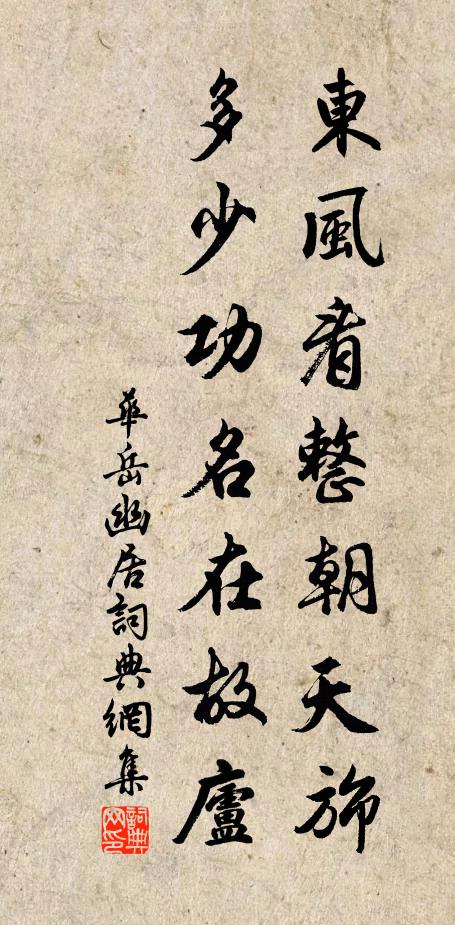 東風看整朝天旆
多少功名在故廬
華岳幽居詞典網集
詞典網印